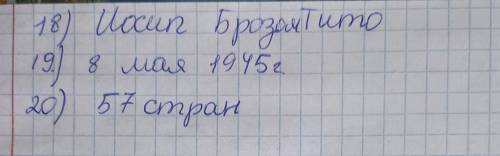 18) Иосип Брозом Тито
19.) 8 мая 1945г.
20) 57 стран